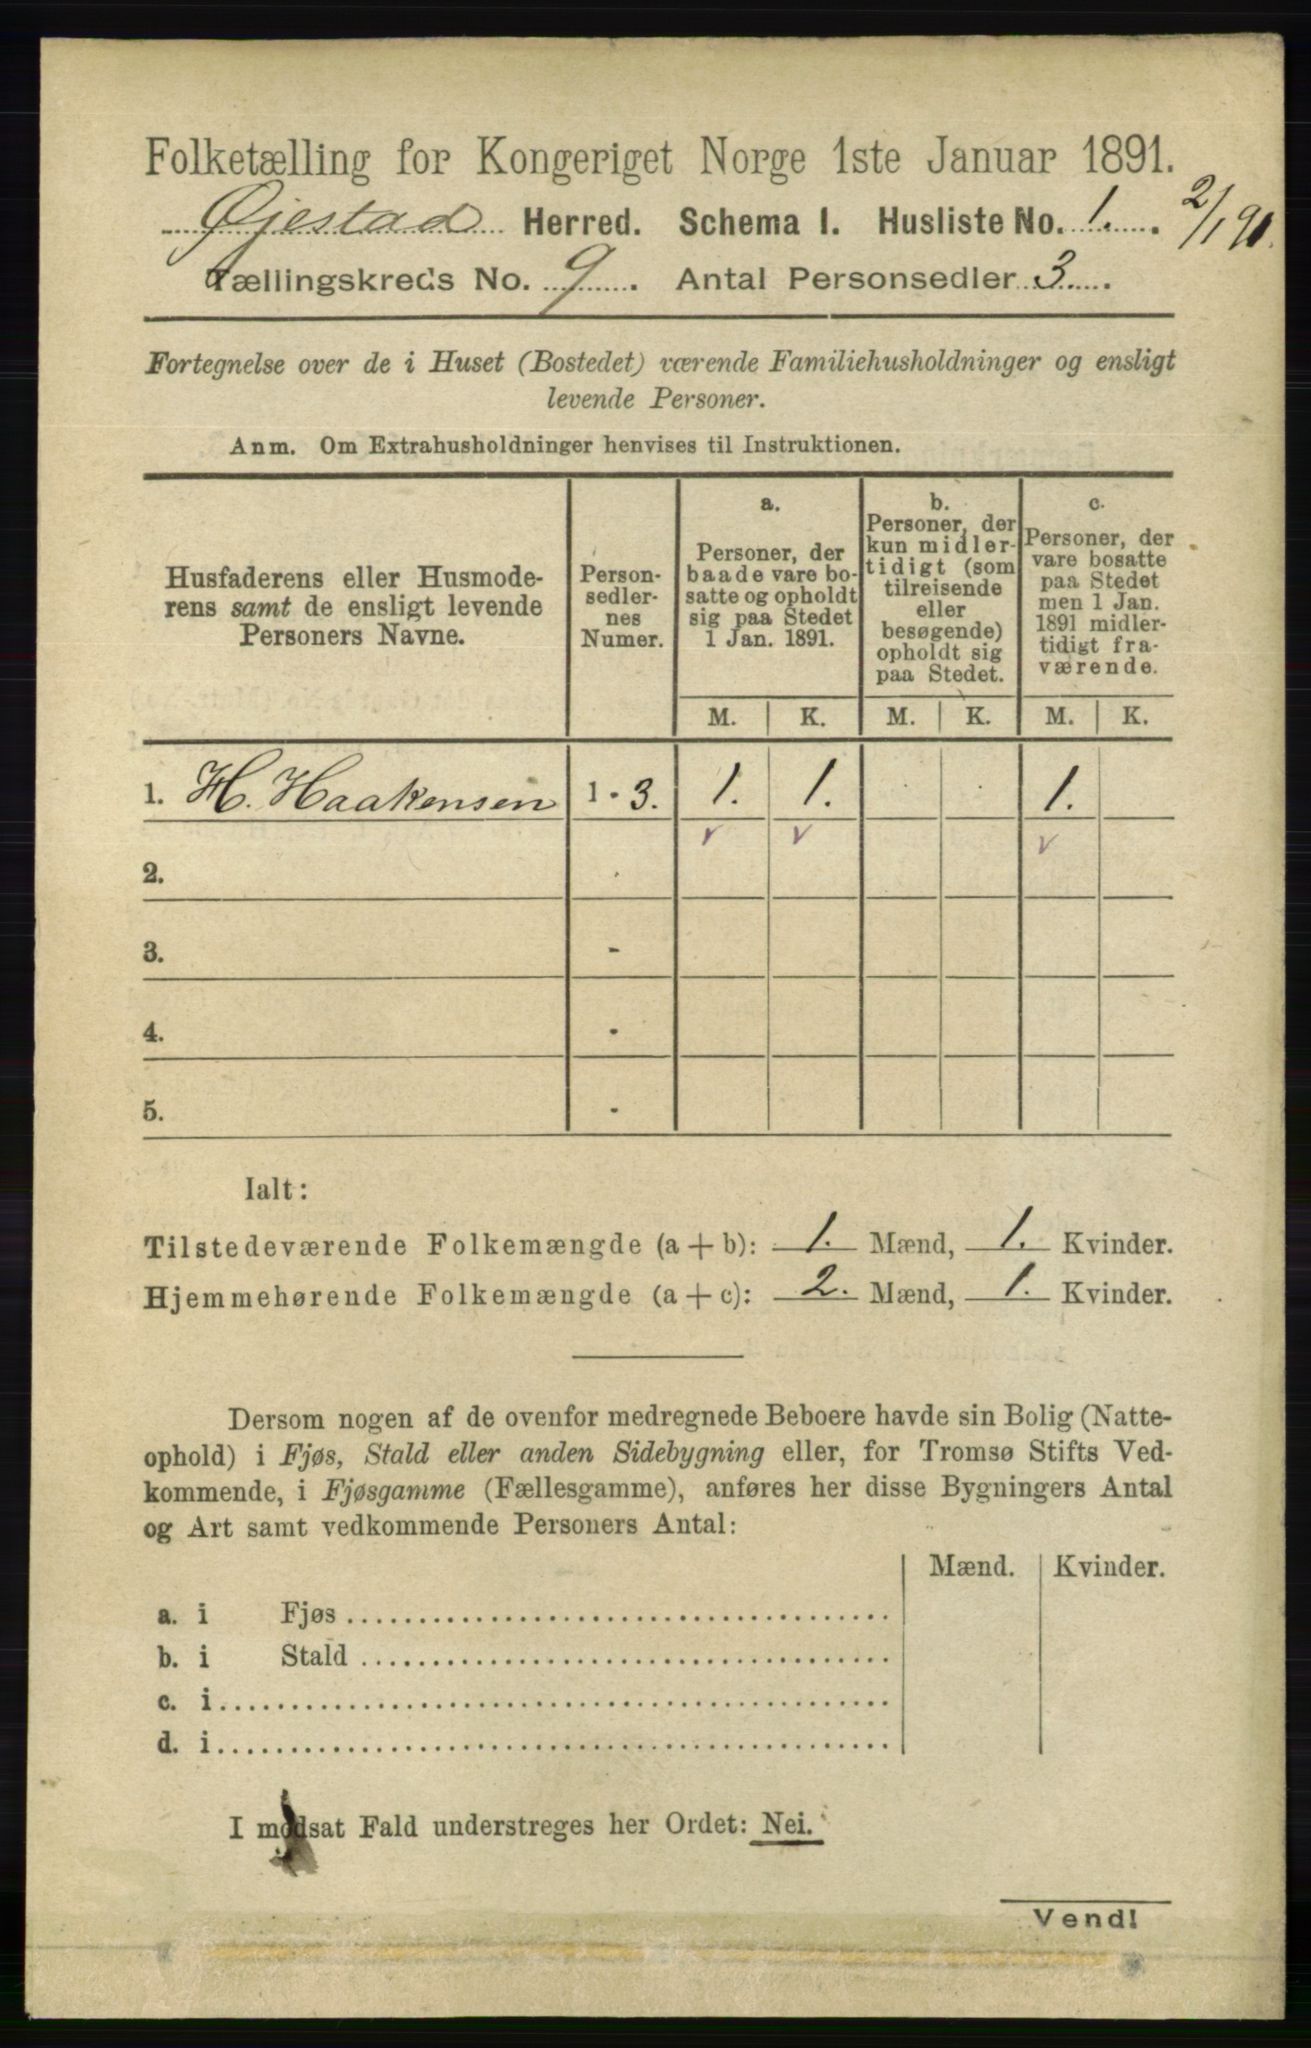 Folketælling for Kongeriget Norge 1ste Januar 1891.
Øjestad Herred. Schema I. Husliste No. 1. 2/1 91.
Tællingskreds No. 9. Antal Personsedler 3.
Fortegnelse over de i Huset (Bostedet) værende Familiehusholdninger og ensligt
levende Personer.
Anm. Om Extrahusholdninger henvises til Instruktionen.
Husfaderens eller Husmode-
rens samt de ensligt levende
Personers Navne.
Person-
sedler-
nes
Numer.
a.
Personer, der
baade vare bo-
satte og opholdt
sig paa Stedet
1 Jan. 1891.
b.
Personer, der
kun midler-
tidigt (som
tilreisende
eller
besøgende)
opholdt sig
paa Stedet.
c.
Personer, der
vare bosatte
paa Stedet
men 1 Jan.
1891 midler-
tidigt fra-
værende.
M. K. M. K. M. K.
1. H. Haakensen 1 - 3. 1. 1. 1.
v v v
2.
3. -
4. -
5. -
Ialt:
Tilstedeværende Folkemængde (a + b): 1. Mænd, 1. Kvinder.
Hjemmehørende Folkemængde (a + c): 2. Mænd, 1. Kvinder.
Dersom nogen af de ovenfor medregnede Beboere havde sin Bolig (Natte-
ophold) i Fjøs, Stald eller anden Sidebygning eller, for Tromsø Stifts Ved-
kommende, i Fjøsgamme (Fællesgamme), anføres her disse Bygningers Antal
og Art samt vedkommende Personers Antal:
Mænd. Kvinder.
a. i Fjøs
b. i Stald
c. i
d. i
I modsat Fald understreges her Ordet: Nei.
Vend!